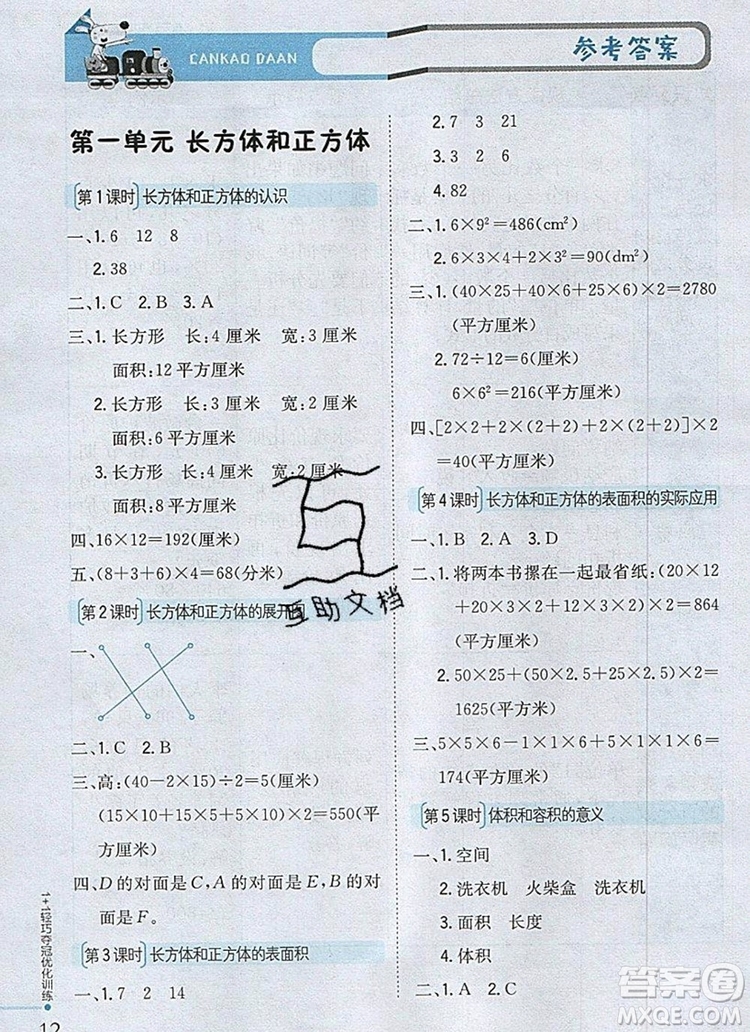 CANKAO DAAN
参考答案
第一单元 长方体和正方体
第1课时 长方体和正方体的认识
一、1.6 12 8
2.38
二、1.C 2.B 3.A
三、1.长方形 长:4厘米 宽:3厘米
面积:12平方厘米
2.长方形 长:3厘米 宽:2厘米
面积:6平方厘米
3.长方形 长:4厘米 宽:2厘米
面积:8平方厘米
四、16×12=192(厘米)
五、(8+3+6)×4=68(分米)
第2课时 长方体和正方体的展开图
一、
二、1.C 2.B
三、高:(40-2×15)÷2=5(厘米)
(15×10+15×5+10×5)×2=550(平
方厘米)
四、D的对面是C,A的对面是E,B的对
面是F。
第3课时 长方体和正方体的表面积
一、1.7 2 14
2.7 3 21
3.3 2 6
4.82
二、1.6×9²=486(cm²)
2.6×3×4+2×3²=90(dm²)
三、1.(40×25+40×6+25×6)×2=2780
(平方厘米)
2.72÷12=6(厘米)
6×6²=216(平方厘米)
四、[2×2+2×(2+2)+2×(2+2)]×2
=40(平方厘米)
第4课时 长方体和正方体的表面积的实际应用
一、1.B 2.A 3.D
二、1.将两本书摞在一起最省纸:(20×12
+20×3×2+12×3×2)×2=864
(平方厘米)
2.50×25+(50×2.5+25×2.5)×2=
1625(平方厘米)
三、5×5×6-1×1×6+5×1×5×2×2=
174(平方厘米)
第5课时 体积和容积的意义
一、1.空间
2.洗衣机 火柴盒 洗衣机
3.面积 长度
4.体积
1+1轻巧夺冠优化训练
12
互助文档
答案圈
MXQE.COM